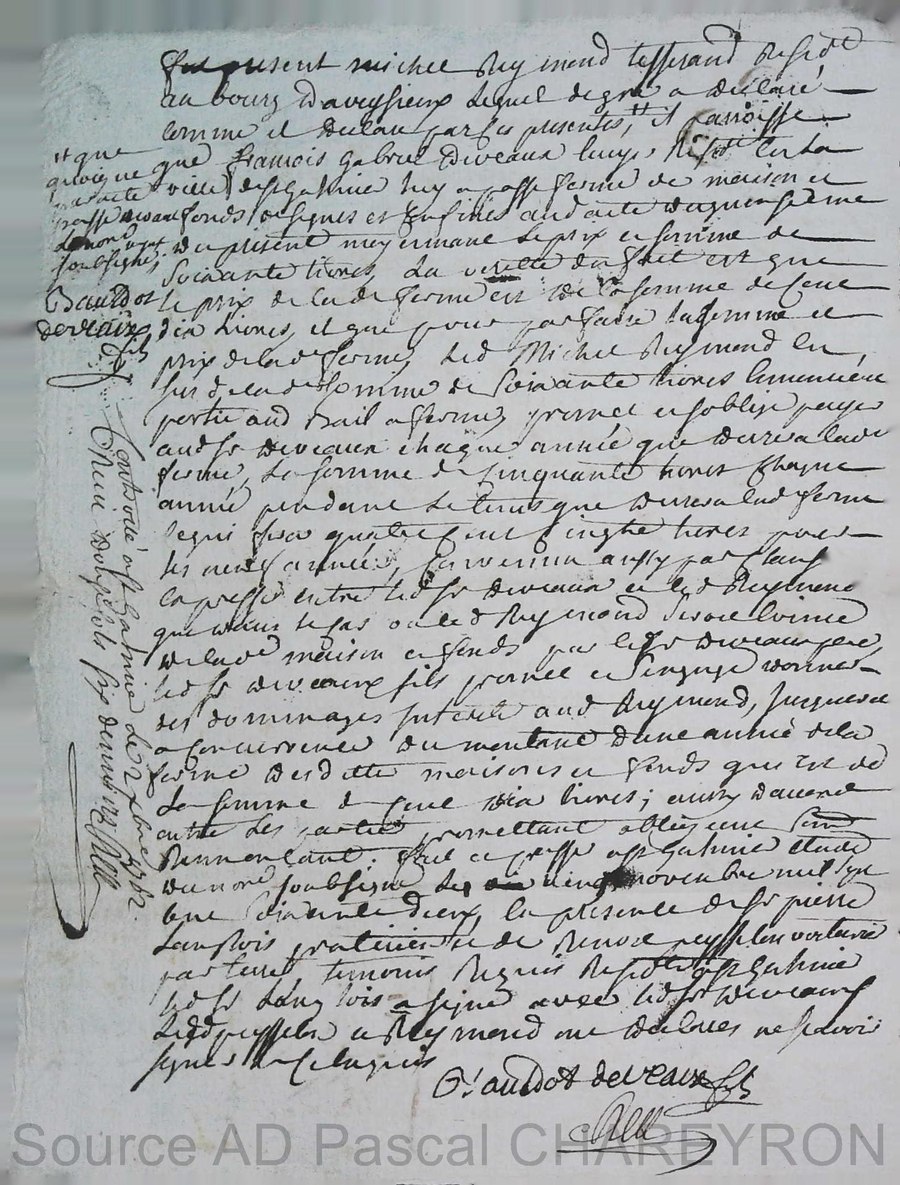 fut present michel Reymond tisserand residt
au bourg d'aveysieux lequel de gré a déclaré
comme il déclare par ces presentes, il paroisse
que francois gabriel deveaux bourgs residt en la
ville de st galmier luy a passé ferme de maison et
fonds designés et confinés aud acte du quinzieme
du present moyennant le prix et somme de
soixante livres, la verité du fait est que
le prix de lad ferme est de la somme de cent
dix livres, et que pour parfaire la somme et
prix de lade ferme, led Michel Reymond en
sus de lade somme de soixante livres
portée aud bail a ferme, promet et soblige payer
aud sr deveaux chaque année que durera lade
ferme, la somme de cinquante livres chaque
année pendant le temps que durera lad ferme
ce qui fera quatre cent cinqte livres pour
les neuf années, convenu aussy par clause
expresse entre led sr deveaux et led Reymond
que dans le cas ou led Reymond seroit evincé
de lade maison et fonds par le sr deveaux pere,
led sr deveaux fils promet et s'engage donner
des dommages interets aud Reymond, jusques a
a concurrence du montant d'une année de la
ferme desdittes maisons et fonds qui est de
la somme de cent dix livres; ainsy convenu
entre les parties promettant obligeant
Renoncant. fait et passé a st galmier etude
du nore soubsigné le vingt novembre mil sept
cent soixante deux, en presence de sr pierre
Langlois praticien et de Benoit peysselon voiturier
par terre temoins requis residts a st galmier
led sr Langlois a signé avec led sr deveaux
led peysselon et Reymond ont déclaré ne scavoir
signer de ce enquis
G: audot deveaux fils
et que
quoique
par acte
passé devant
le nore
soubsigné,
G audot
deveaux
fils
Controllé a st Galmier le 2 xbre 1762.
Recu